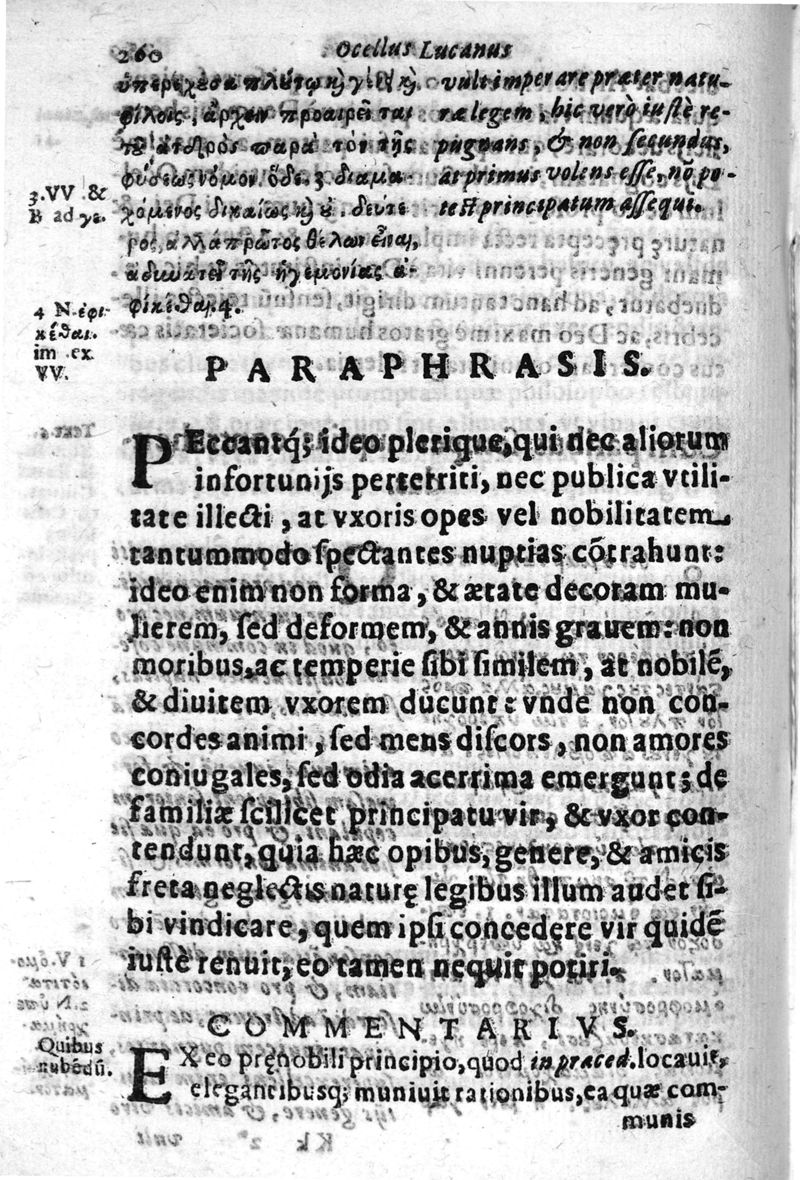 260 Ocellus Lucanus
ὑπερέχουσα πλούτῳ καὶ γένει καὶ
φίλοις, ἄρχειν προαιρεῖται
τοῦ ἀνδρὸς παρὰ τὸν τῆς
φύσεως νόμον. ὁ δὲ 3 διαμα-
χόμενος δικαίως καὶ οὐ δεύτε
ρος, ἀλλὰ πρῶτος θέλων εἶναι,
ἀδυνατεῖ τῆς ἡγεμονίας ἀ-
φικέσθαι. 4.
vult imperare præter natu-
ræ legem, hic verò iustè re-
pugnans, & non secundus,
at primus volens esse, nō po-
test principatum assequi.
3. VV &
B ad γε.
4 N. ἐφι-
κέσθαι.
im ex
VV.
PARAPHRASIS.
PEccantq́; ideo plerique, qui nec aliorum
infortunijs perterriti, nec publica vtili-
tate illecti, at vxoris opes vel nobilitatem
tantummodo spectantes nuptias cōtrahunt:
ideo enim non forma, & ætate decoram mu-
lierem, sed deformem, & annis grauem: non
moribus, ac temperie sibi similem, at nobilē,
& diuitem vxorem ducunt: vnde non con-
cordes animi, sed mens discors, non amores
coniugales, sed odia acerrima emergunt; de
familiæ scilicet principatu vir, & vxor con-
tendunt, quia hæc opibus, genere, & amicis
freta neglectis naturę legibus illum audet si-
bi vindicare, quem ipsi concedere vir quidē
iustè renuit, eo tamen nequit potiri.
COMMENTARIVS.
Quibus
nubēdū.
EX eo pręnobili principio, quod in præced. locauit,
elegantibusq; muniuit rationibus, ea quæ com-
munis